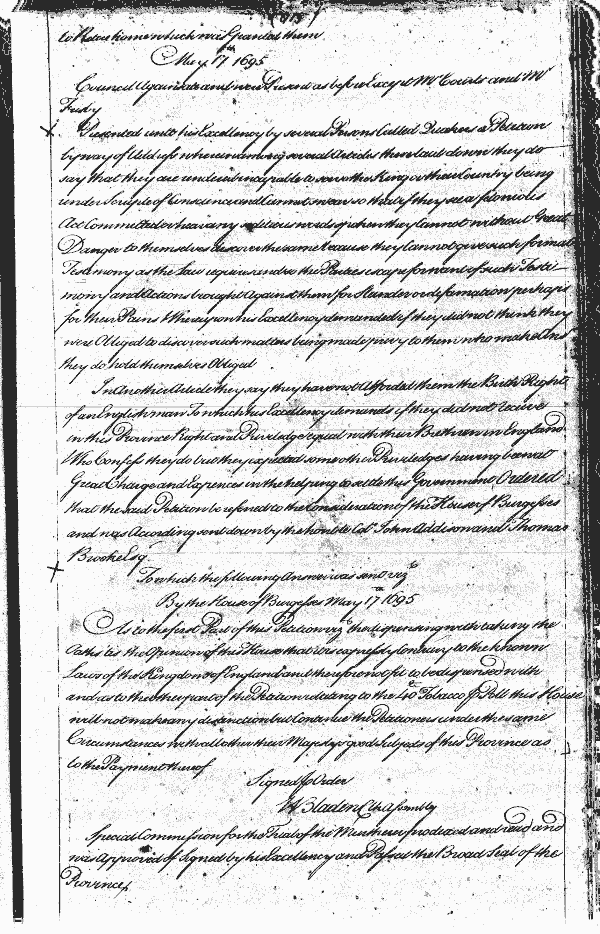 to Retire home which was granted them
May 17th 1695
Council Again sate and were Present as before Except Mr Courts and Mr
Frisby
Presented unto his Excellency by several Persons Called Quakers a Petition
by way of Address wherein among several Articles them laid down they do
say that they are under incapable to serve the King or their Country being
under Scruple of Conscience and cannot swear so that if they see a felonious
Act Committed or hear any seditious words spoken they cannot without Great
Danger to themselves discover the same because they cannot give such formal
Testimony as the Law requires and so the Parties escape for want of such Testi
mony and Actions brought against them for Slander or defamation perhaps
for their Pains Whereupon his Excellency demanded if they did not think they
were Obliged to discover such matters being made privy to them who make Ans
they do hold themselves Obliged
In Another Article they say they have not Afforded them the Birth Right
of an English man To which his Excellency demands if they did not receive
in this Province Right and Priviledge equal with their Brethren in England
Who Confess they do but they expected some other Priviledges having been at
Great Charge and Expences in the helping to settle this Government Ordered
that the said Petition be refered to the Consideration of the House of Burgesses
and was Acording sent down by the honoble Col John Addison and Thomas
Brooke Esqr
To which the following Answer was sent vizt
By the House of Burgesses May 17th 1695
As to the first Part of this Petition vizt the dispensing with taking the
Oaths its the Opinion of this House that it is expressly Contrary to the known
Laws of the Kingdom of England and therefore not fit to be dispensed with
and as to the other part of the Petition relating to the 40 Tobacco p Poll this House
will not make any distinction but Continue the Petitioners under the same
Circumstances with all other their Majestys good Subjects of this Province as
to the Payment thereof
Signed p Order
W Bladen Cl Assembly
Special Commission for the Trial of the Murtherers produced and read and
was Approved of Signed by his Excellency and Passed the Broad Seal of the
Province